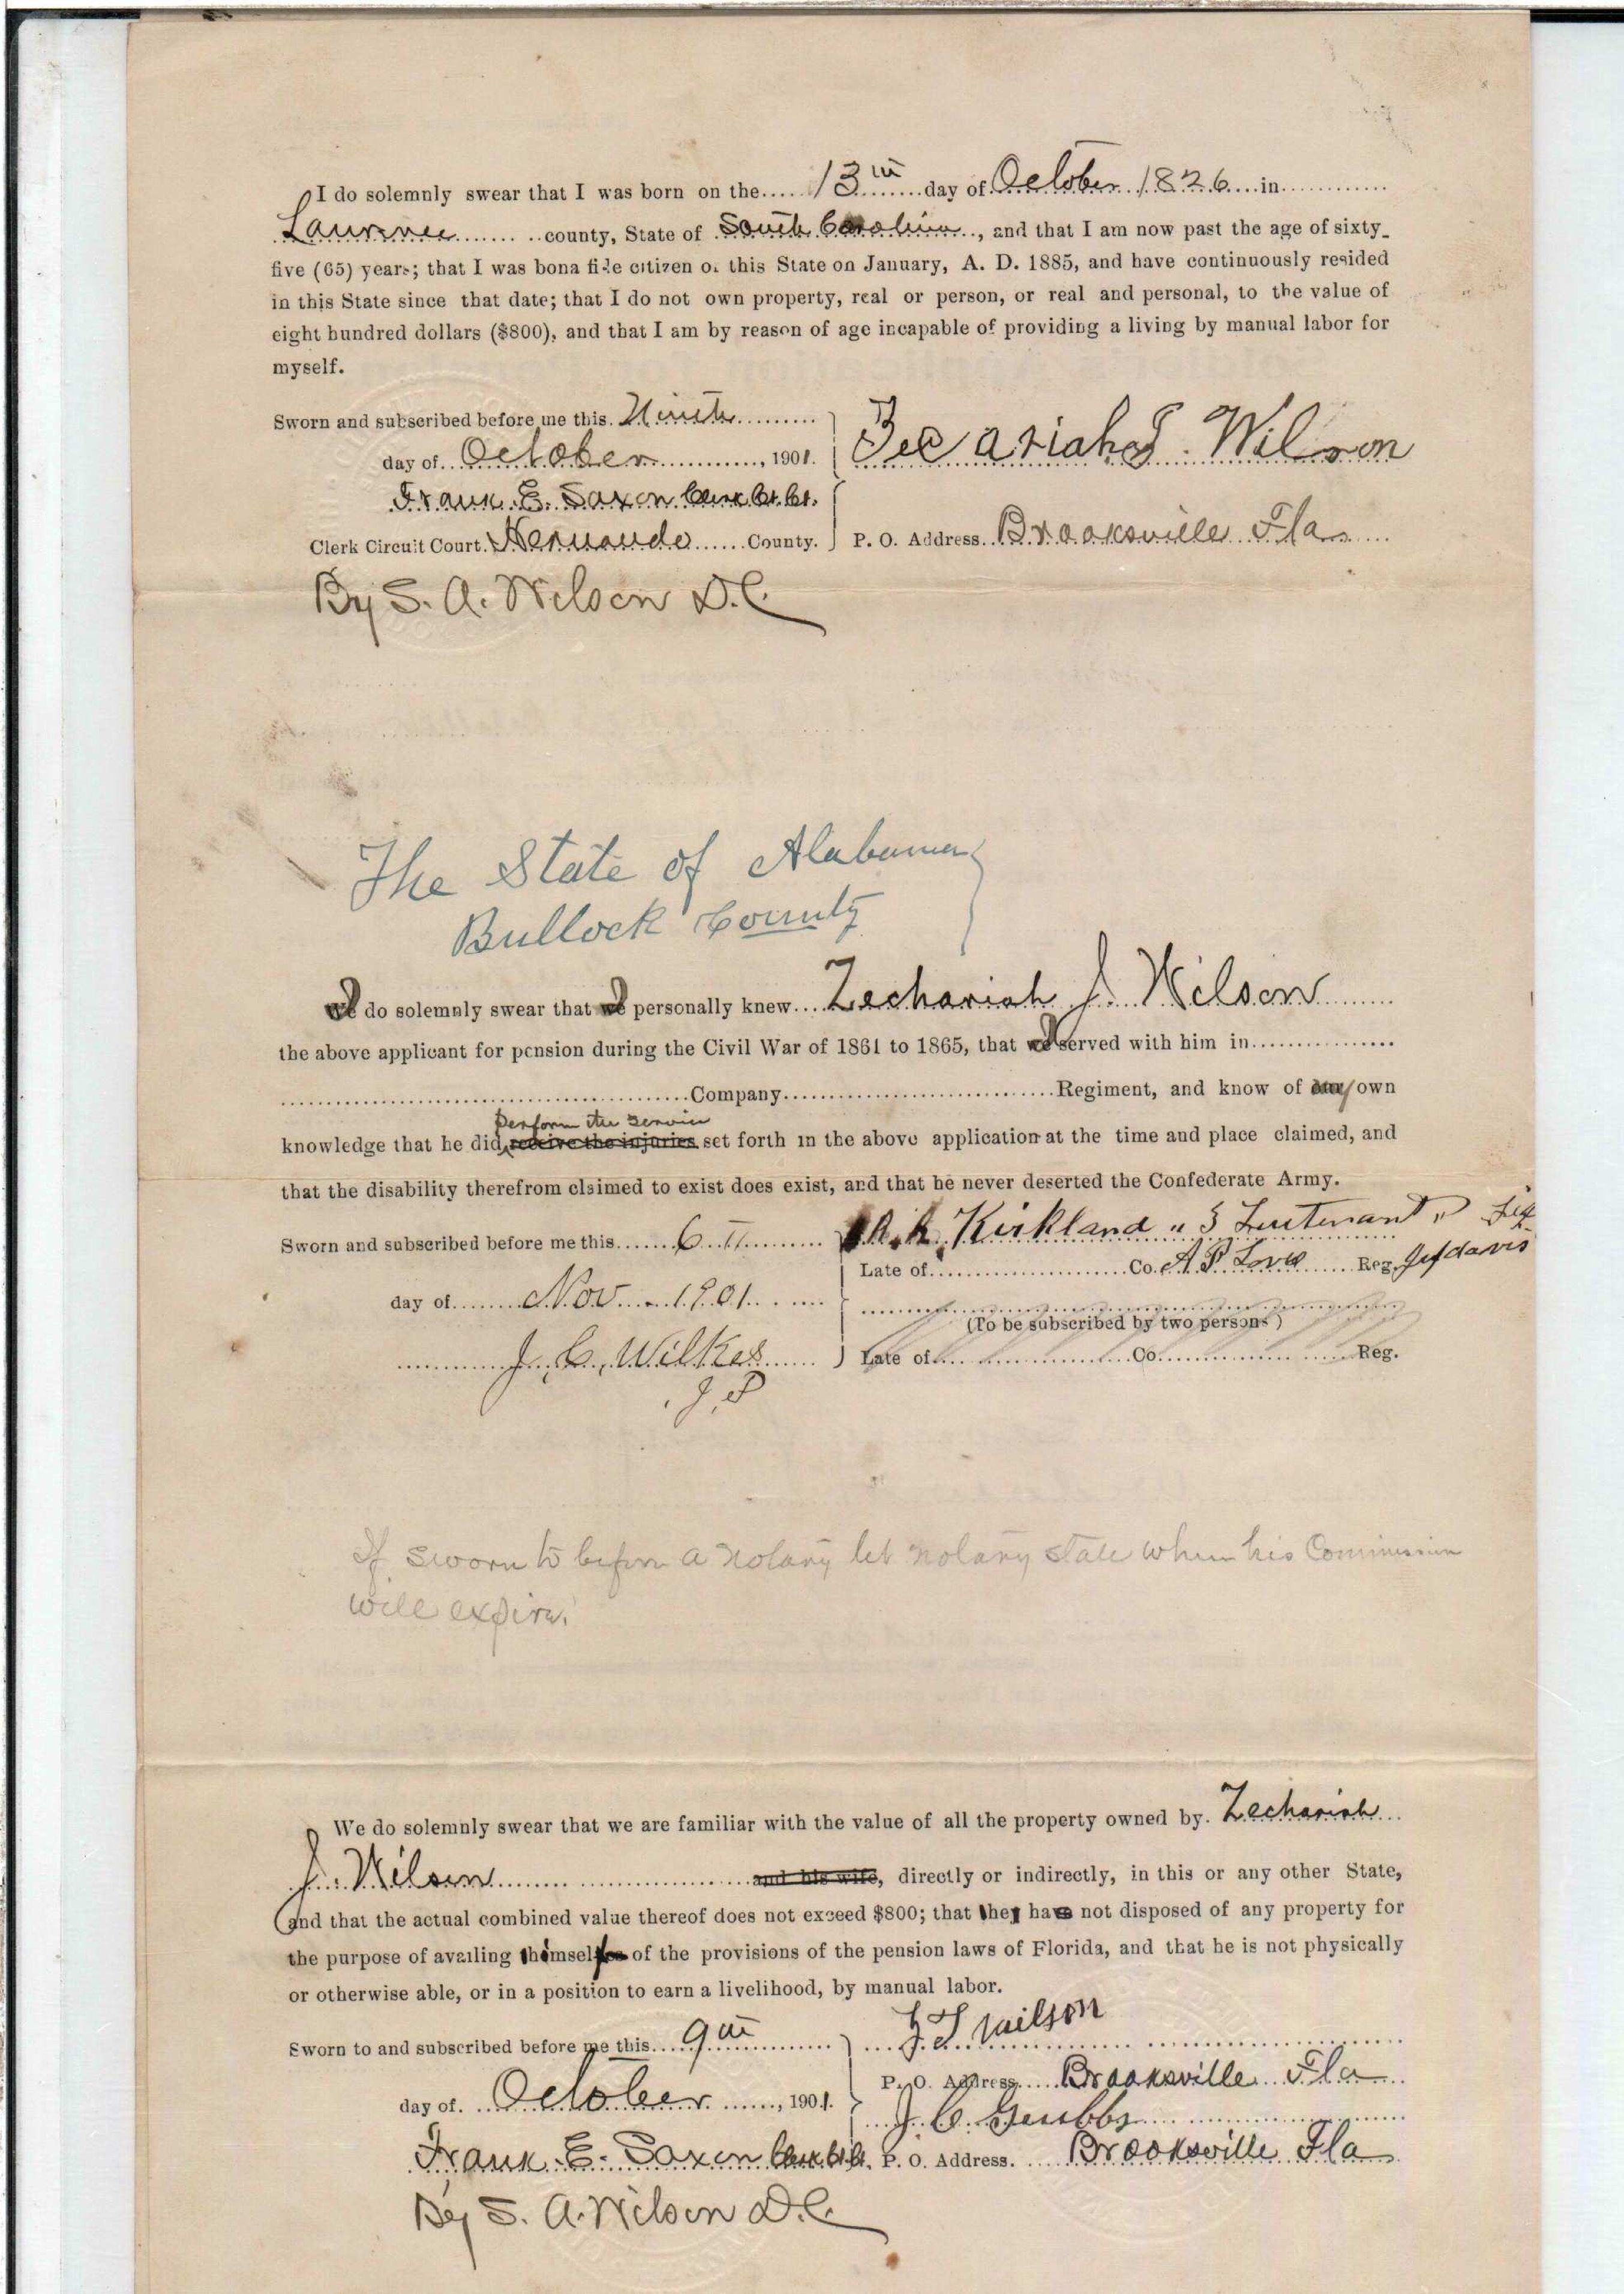 I do solemnly swear that I was born on the 13th day of October 1826 in
county, State of South Carolina, and that I am now past the age of sixty-
five (65) years; that I was bona fide citizen of this State on January, A. D. 1885, and have continuously resided
in this State since that date; that I do not own property, real or person, or real and personal, to the value of
eight hundred dollars ($800), and that I am by reason of age incapable of providing a living by manual labor for
myself.
Sworn and subscribed before me this Ninth
day of October, 1901.
Zecariah J. Wilson
Frank E. Saxon Clerk Ct. Ct.
Clerk Circuit Court Hernando County.
P. O. Address Brooksville Fla
By S. A. Wilson D.C.
The State of Alabama
Bullock County
I do solemnly swear that I personally knew Zechariah J. Wilson
the above applicant for pension during the Civil War of 1861 to 1865, that I served with him in
Company Regiment, and know of my own
perform the service
knowledge that he did receive the injuries set forth in the above application at the time and place claimed, and
that the disability therefrom claimed to exist does exist, and that he never deserted the Confederate Army.
Sworn and subscribed before me this 6
Kirkland " 3 Lieutenant "
Late of Co. A P Love Reg. Jefdavis
day of Nov - 1901
(To be subscribed by two persons)
J. C. Wilkes
Late of Co. Reg.
J. P
If sworn to before a notary let notary state when his Commission
will expire.
We do solemnly swear that we are familiar with the value of all the property owned by Zechariah
J. Wilson and his wife, directly or indirectly, in this or any other State,
and that the actual combined value thereof does not exceed $800; that he has not disposed of any property for
the purpose of availing himself of the provisions of the pension laws of Florida, and that he is not physically
or otherwise able, or in a position to earn a livelihood, by manual labor.
Sworn to and subscribed before me this 9th
Wilson
P. O. Address Brooksville Fla
day of October, 1901.
J. C. Grubbs
Frank E. Saxon Clerk Ct. Ct.
P. O. Address. Brooksville Fla
By S. A. Wilson D.C.